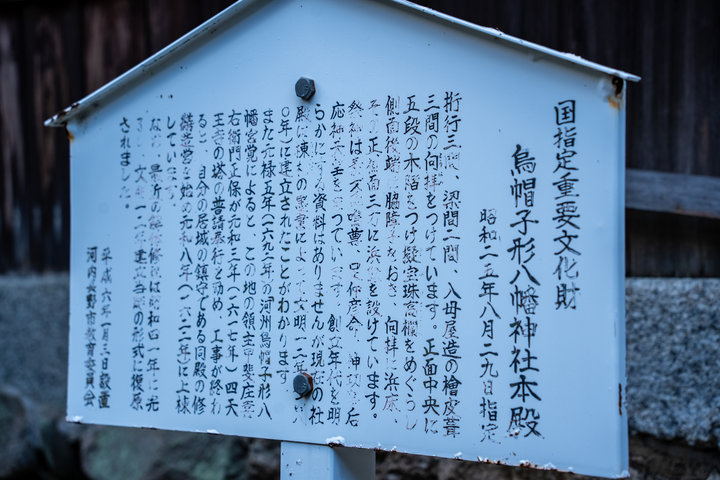 国指定重要文化財
烏帽子形八幡神社本殿
昭和二五年八月二九日指定
桁行三間、梁間二間、入母屋造の檜皮葺
三間の向拝をつけています。正面中央に
五段の木階をつけ擬宝珠高欄をめぐらし
側面後端に脇障子をおき、向拝に浜床、
正面三方に浜縁を設けています。
祭神は
応神天皇をまつています。創立年代を明
らかにする資料はありませんが現在の社
殿は棟木の墨書によって文明一二年(一四八
〇年)に建立されたことがわかります。
また元禄五年(一六九二年)の河州烏帽子形八
幡宮覚によると、この地の領主甲斐庄喜
右衛門正保が元和三年(一六一七年)四天
王寺の塔の普請奉行を勤め、工事が終わ
ると、自分の居城の鎮守である同殿の修
繕造営を始め元和八年(一六二二年)に上棟
しています。
なお、最近の解体修理は昭和四一年に完
文明一二年建立当時の形式に復原
されました。
平成六年一月三日設置
河内長野市教育委員会